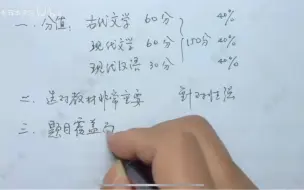 一.分值: 古代文学 60分 40%
现代文学 60分 150分 40%
现代汉语 30分 40%
二.选对教材非常重要 针对性强
三.题目覆盖面